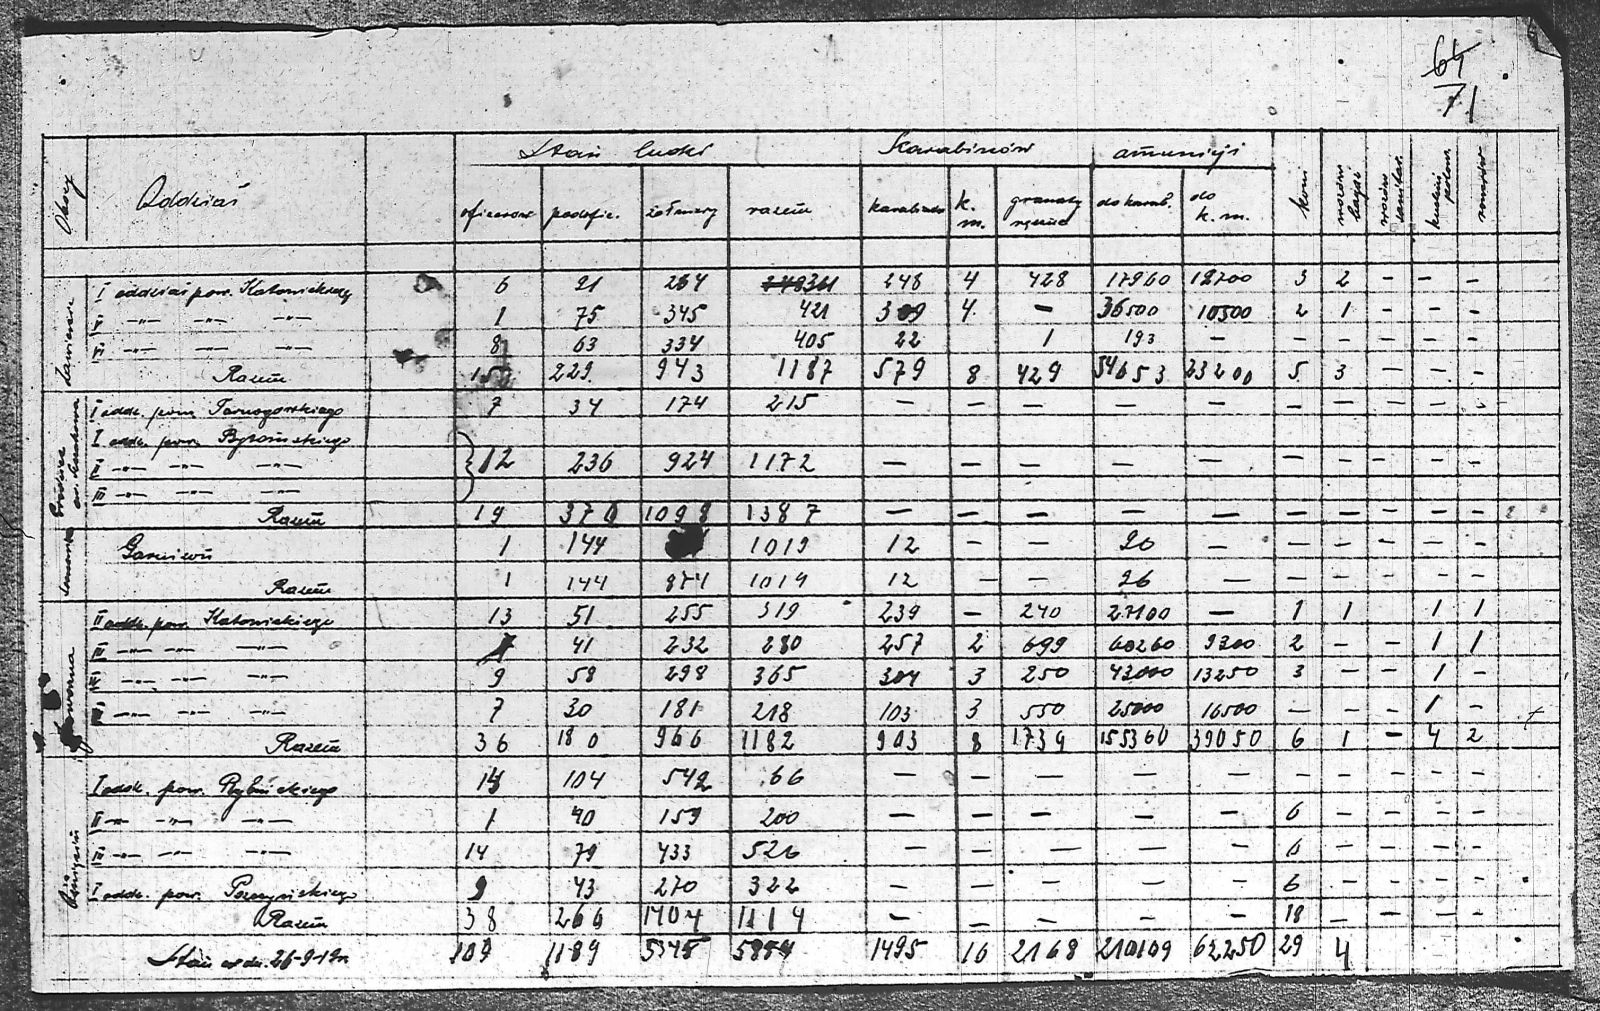 64
71
Stan ludzi Karabinów amunicji
Obozy Oddział oficerów podofic. żołnierzy razem karabinów k. m. granaty ręczne do karab. do k. m. koni
I oddział pow. Katowickiego 6 91 264 248 4 428 17960 12700 3 2 - - -
V -"- -"- -"- 1 75 345 421 309 4 - 36500 10500 2 1 - - -
VI -"- -"- -"- 8 63 334 405 22 1 193 - - - - - -
Razem 15 229 943 1187 579 8 429 54653 23200 5 3 - - -
I oddz. pow. Tarnogórskiego 7 34 174 215 - - - - - - - - - -
I oddz. pow. Bytomskiego
II -"- -"- -"- 12 236 924 1172 - - - - - - - - - -
III -"- -"- -"-
Razem 19 370 1098 1387 - - - - - - - - - -
1 144 1019 12 - - 20 - - - - - -
Razem 1 144 874 1019 12 - - 26 - - - - - -
II oddz. pow. Katowickiego 13 51 255 319 239 - 240 27100 - 1 1 1 1
III -"- -"- -"- 7 41 232 280 257 2 699 60260 9300 2 - - 1 1
-"- -"- -"- 9 58 298 365 304 3 250 43000 13250 3 - - 1 -
-"- -"- -"- 7 30 181 218 103 3 550 25000 16500 - - - 1 -
Razem 36 180 966 1182 903 8 1739 155360 39050 6 1 - 4 2
I oddz. pow. Rybnickiego 14 104 542 66 - - - - - - - - - -
II -"- -"- -"- 1 40 159 200 - - - - - 6 - - - -
III -"- -"- -"- 14 79 433 526 - - - - - 6 - - - -
I oddz. pow. Pszczyńskiego 9 43 270 322 - - - - - 6 - - - -
Razem 38 266 1404 1114 - - - - - 18 - - - -
Stan w dn. 26-9-19r. 109 1189 1495 16 2168 210109 62250 29 4